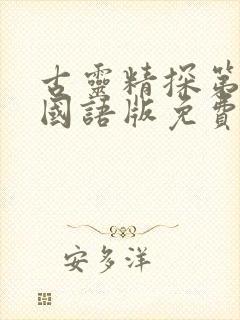 古靈精探第
國語版免費
安多洋